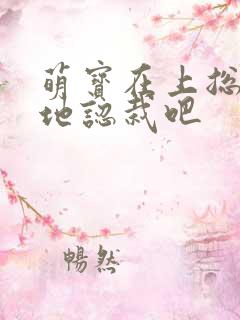 萌寶在上总
地認裁吧
暢然